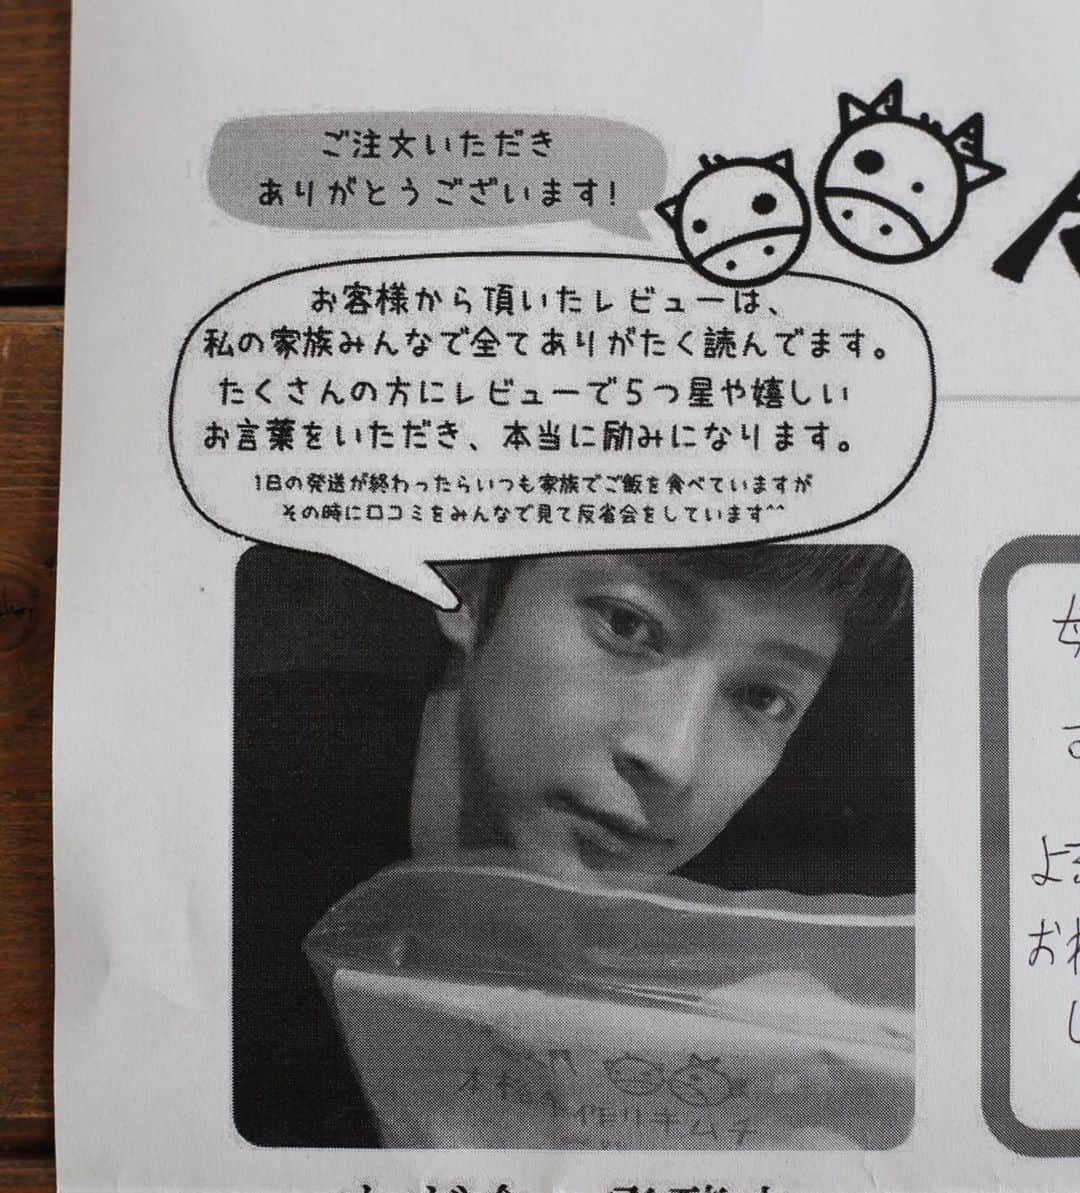 ご注文いただき
ありがとうございます!
お客様から頂いたレビューは、
私の家族みんなで全てありがたく読んでます。
たくさんの方にレビューで5つ星や嬉しい
お言葉をいただき、本当に励みになります。
1日の発送が終わったらいつも家族でご飯を食べていますが
その時に口コミをみんなで見て反省会をしています^^
手作りキムチ
よ
お
し